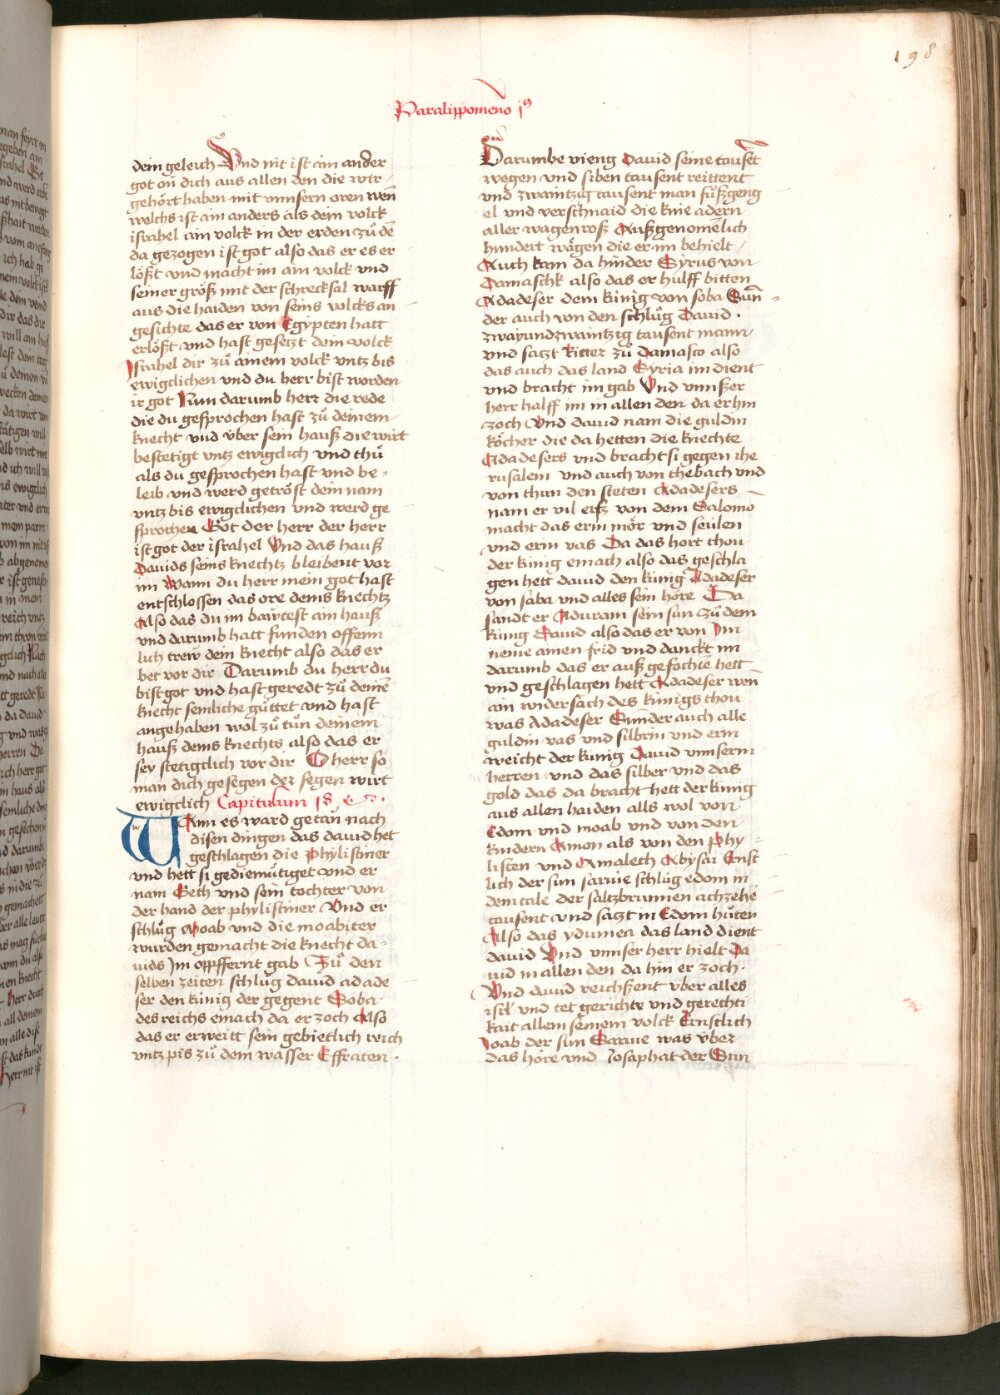 198
Paralippomeno j9
dein geleich Und nit ist ain ander
got on dich aus allen den die wir
gehört haben mit unnsern oren wen
welchs ist ain anders als dein volck
israhel ain volck in der erden zů de
da gezogen ist got also das er es er
lößt und macht im ain volck und
seiner größ mit der schrecksal warff
aus die haiden von seins volcks an
gesichte das er von Egypten hatt
erlößt und hast gesetzt dein volck
Israhel dir zů ainem volck untz bis
ewigclichen und du herr bist worden
ir got Nun darumb herr die rede
die du gesprochen hast zů deinem
knecht und über sein hauß die wirt
bestetigt untz ewigclich und thů
als du gesprochen hast und be-
leib und werd getröst dein nam
untz bis ewigclichen und werd ge
sprochen Got der herr der herr
ist got der israhel Und das hauß
Davids seins knechtz bleibent vor
im Wann du herr mein got hast
entschlossen das ore deins knechtz
Also das du im bawtest ain hauß
und darumb hatt funden offenn
lich trew dein knecht also das er
bet vor dir Darumb du herr du
bist got und hast geredt zů deine
knecht semliche güttet und hast
angehaben wol zů tůn deinem
hauß deins knechts also das er
sey stetigclich vor dir O herr so
man dich gesegen der segen wirt
ewigclich Capitulum 18
Wann es ward getan nach
disen dingen das david het
geschlagen die phylistiner
und hett si gediemütiget und er
nam Geth und sein tochter von
der hand der phylistiner Und er
schlůg Moab und die moabiter
wurden gemacht die knecht da-
vids Im opffernt gab Zů den
selben zeiten schlůg david adade
ser den künig der gegent Soba
des reichs emach da er zoch Also
das er erweitt sein gebietlich reich
untz pis zů dem wasser Effraten.
Darumbe vieng David seine tauset
wegen und siben tausent reittent
und zwaintzig tausent man fůßgeng
el und verschnaid die knie adern
aller wagenroß Außgenomelich
hundert wägen die er im behielt
Auch kam da hinder Syrus von
Damaschk also das er hulff bitten
Adadeser dem künig von soba Sun-
der auch von den schlůg David.
zwayundzwaintzig tausent mann
und satzt Ritter zů Damasco also
das auch das land Syria im dient
und bracht im gab Und unnßer
herr halff im in allen den da er hin
zoch Und david nam die guldin
köcher die da hetten die knechte
Adadesers und bracht si gegen ihe
rusalem und auch von thebach und
von thun den steten Adadesers
nam er vil erß von dem Salomo
macht das erin mör und seulen
und erin vas Da das hort thou
der künig emach also das geschla
gen hett david den künig Adadeser
von saba und alles sein höre Da
sandt er Aduram sein sun zů dem
künig David also das er von Im
neme ainen frid und danckt im
darumb das er auß gefochte hett
und geschlagen hett Adadeser wen
ain widersach des künigs thou
was Adadeser Sunder auch alle
guldin vas und silbrin und erin
weicht der künig David unnserm
herren und das silber und das
gold das da bracht hett der künig
aus allen haiden alls wol von
Edom und moab und von den
kindern Amon als von den Phy-
listen und Amalech Abysai Enst
lich der sun saruie schlůg edom in
dem tale der saltzbrunnen achzehe
tausent und satzt in Edom hüten
Also das ydumea das land dient
david Und unnser herr hielt Da
vid in allen den da hin er zoch.
Und david reichsent über alles
isrl und tet gerichte und gerechti
kait allem seinem volck Ernstlich
Joab der sun Saruie was über
das höre und Josaphat der Sun